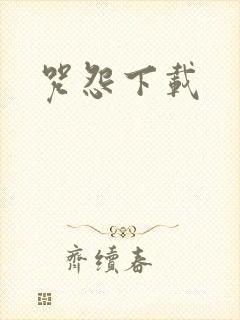 咒怨下載
齊續春